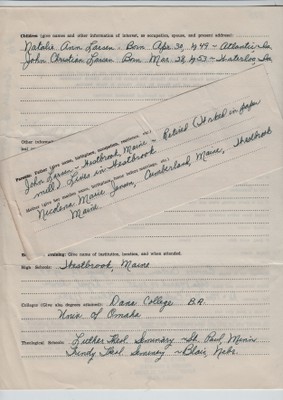 Children (give names and other information of interest, as occupation, spouse, and present address):
Natalie Ann Larsen - Born Apr. 30, 1949 - Atlantic - Ia
John Christian Larsen Born Mar. 28, 1953 - Waterloo, Ia
Other information
Parents: Father (give name, birthplace, occupation, residence, etc.)
John Larsen - Westbrook, Maine - Retired (Worked in paper
mill) Lives in Westbrook
Mother (give her maiden name, birthplace, home before marriage, etc.)
Nicolena Marie Jensen, Cumberland, Maine, Westbrook
Maine.
Training: Give name of institution, location, and when attended.
High School: Westbrook, Maine
Colleges (Give also degrees attained): Dana College B.A.
Univ. of Omaha
Theological Schools: Luther Theol. Seminary - St. Paul, Minn
Trinity Theol. Seminary - Blair, Nebr.